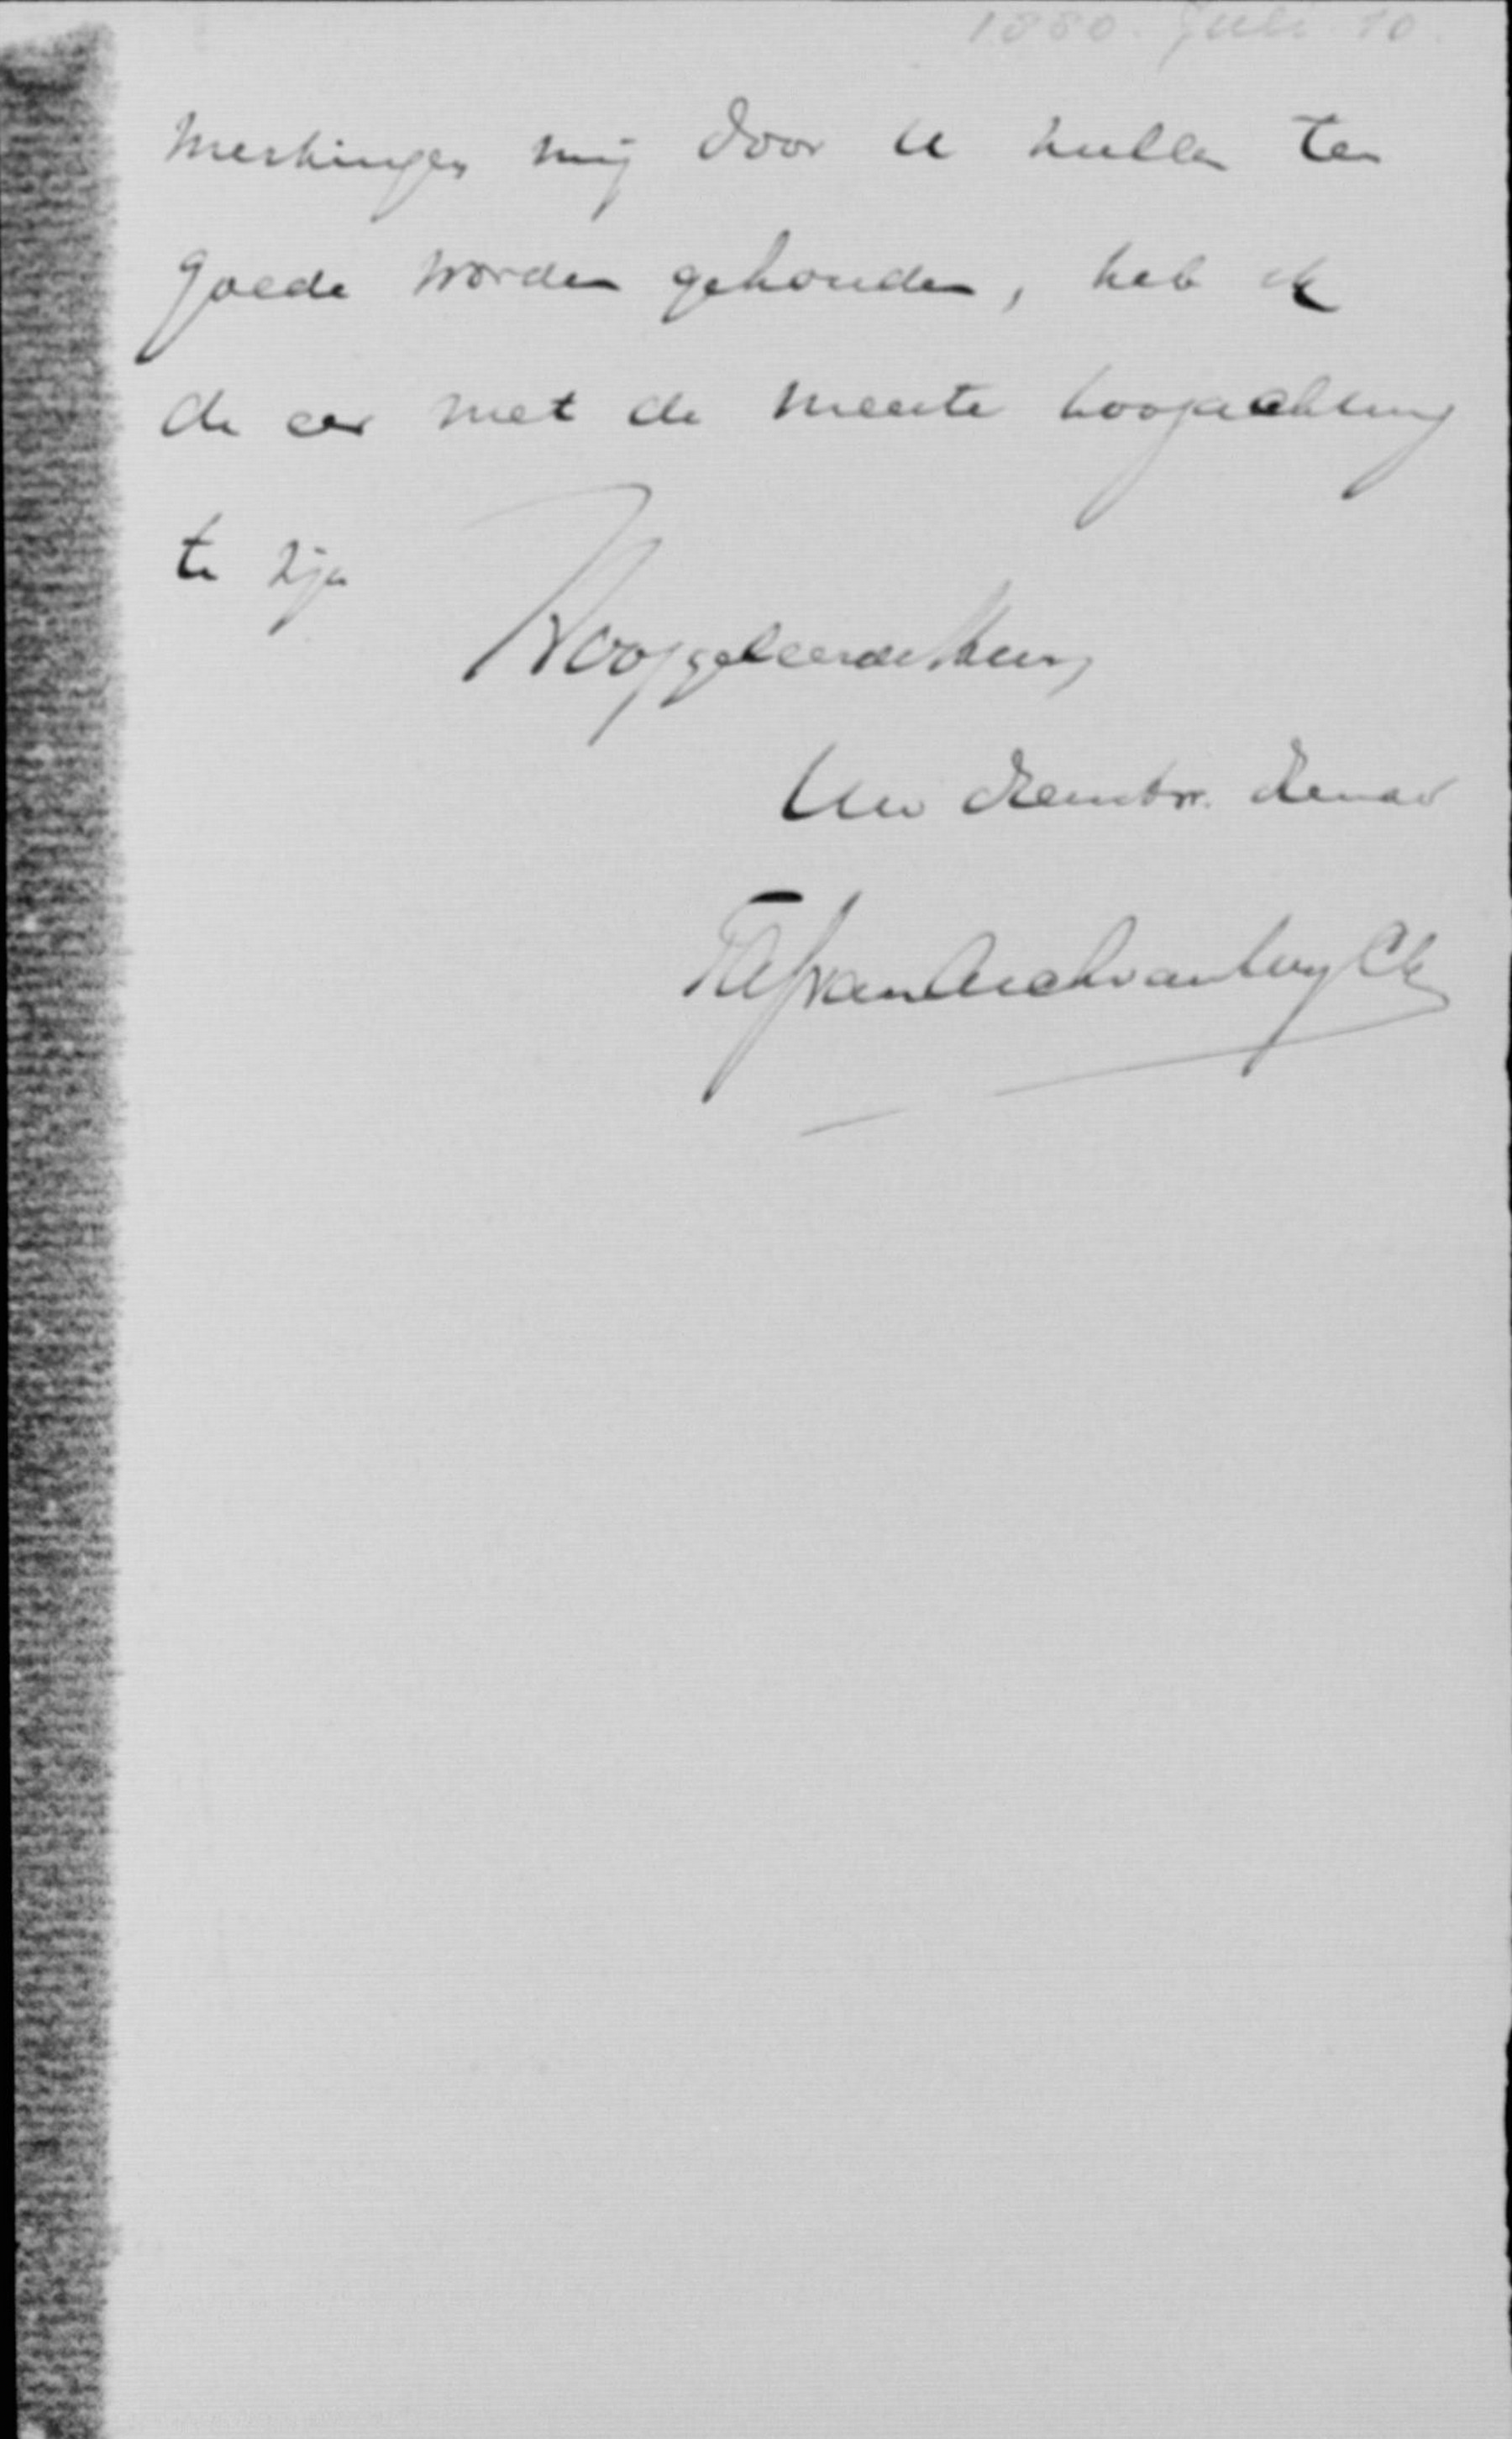 1880. Juli 10.
merkingen mij door U zullen ten
goede worden gehouden, heb ik
de eer met de meeste hoogachting
te zijn
Hooggeleerde Heer,
Uw dienstw. dienaar